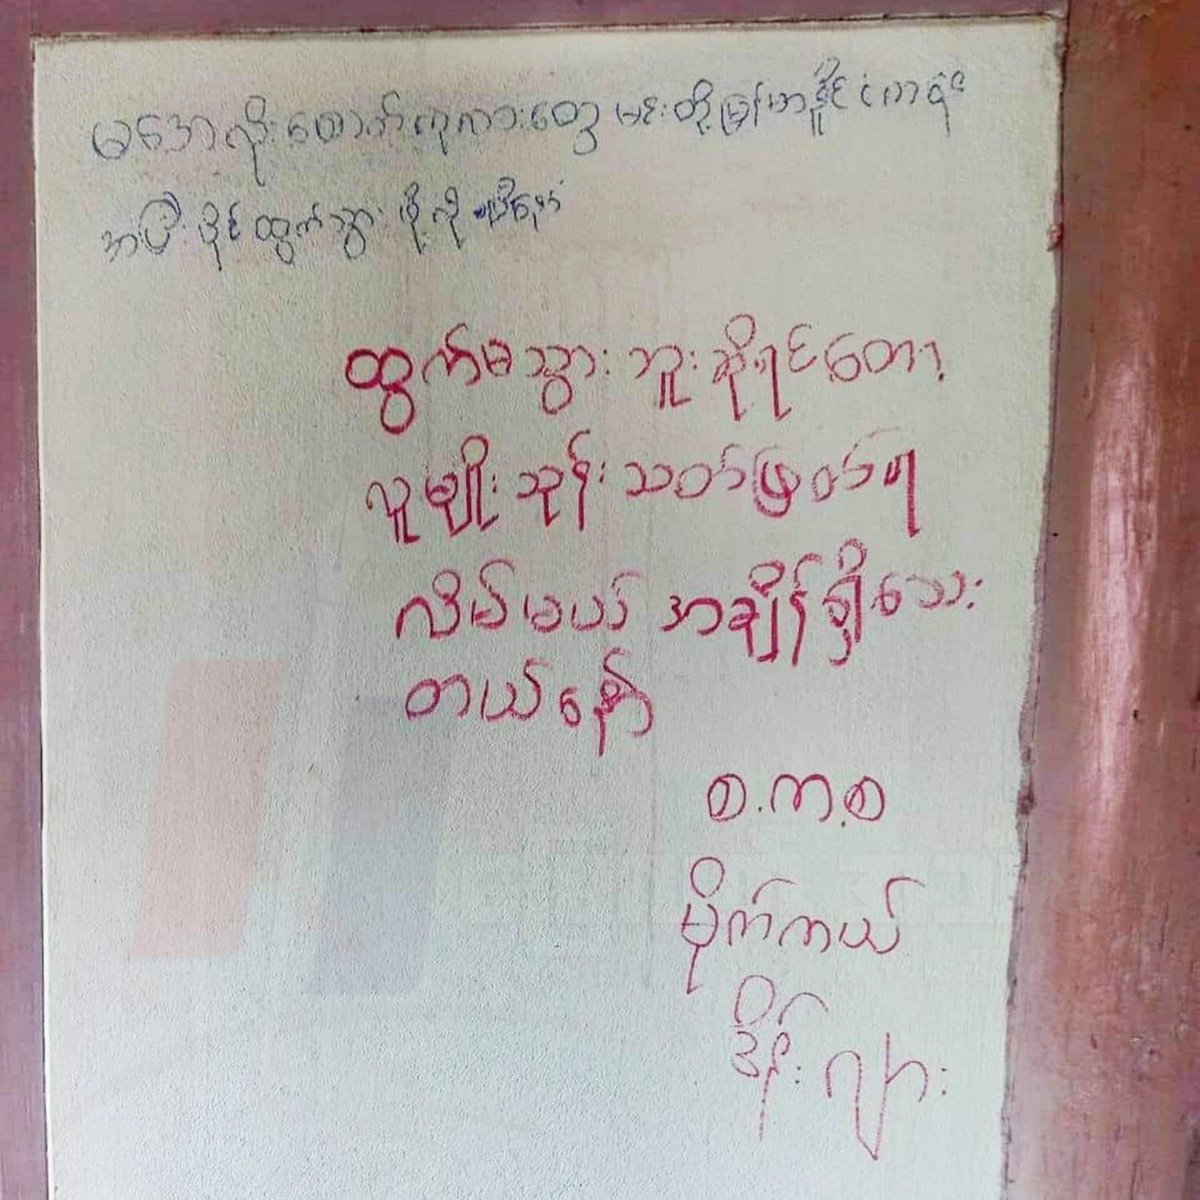 မအေလိုး တောက်ကုလားတွေ မင်းတို့ မြန်မာနိုင်ငံကရန်
အပြီးပိုင် ထွက်သွားဖို့လို
ထွက်မသွားဘူးဆိုရင်တော့
လူမျိုးသုန်းသတ်ဖြတ်ရ
လိမ်မယ် အချိန်ရှိသေး
တယ်နော်
စ.က.စ
မိုက်ကယ်
ဒိန်းဂျား